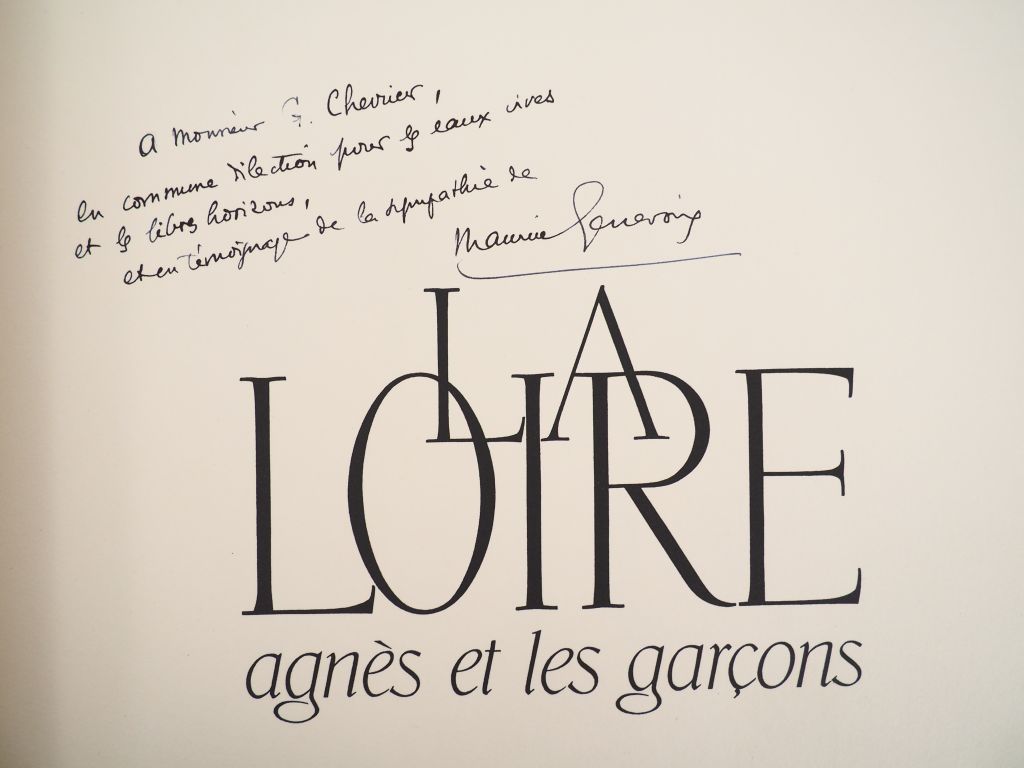 A Monsieur G. Chevrier,
en commune dilection pour les eaux vives
et les libres horizons,
et en témoignage de la sympathie de
Maurice Genevoix
LA
LOIRE
agnès et les garçons